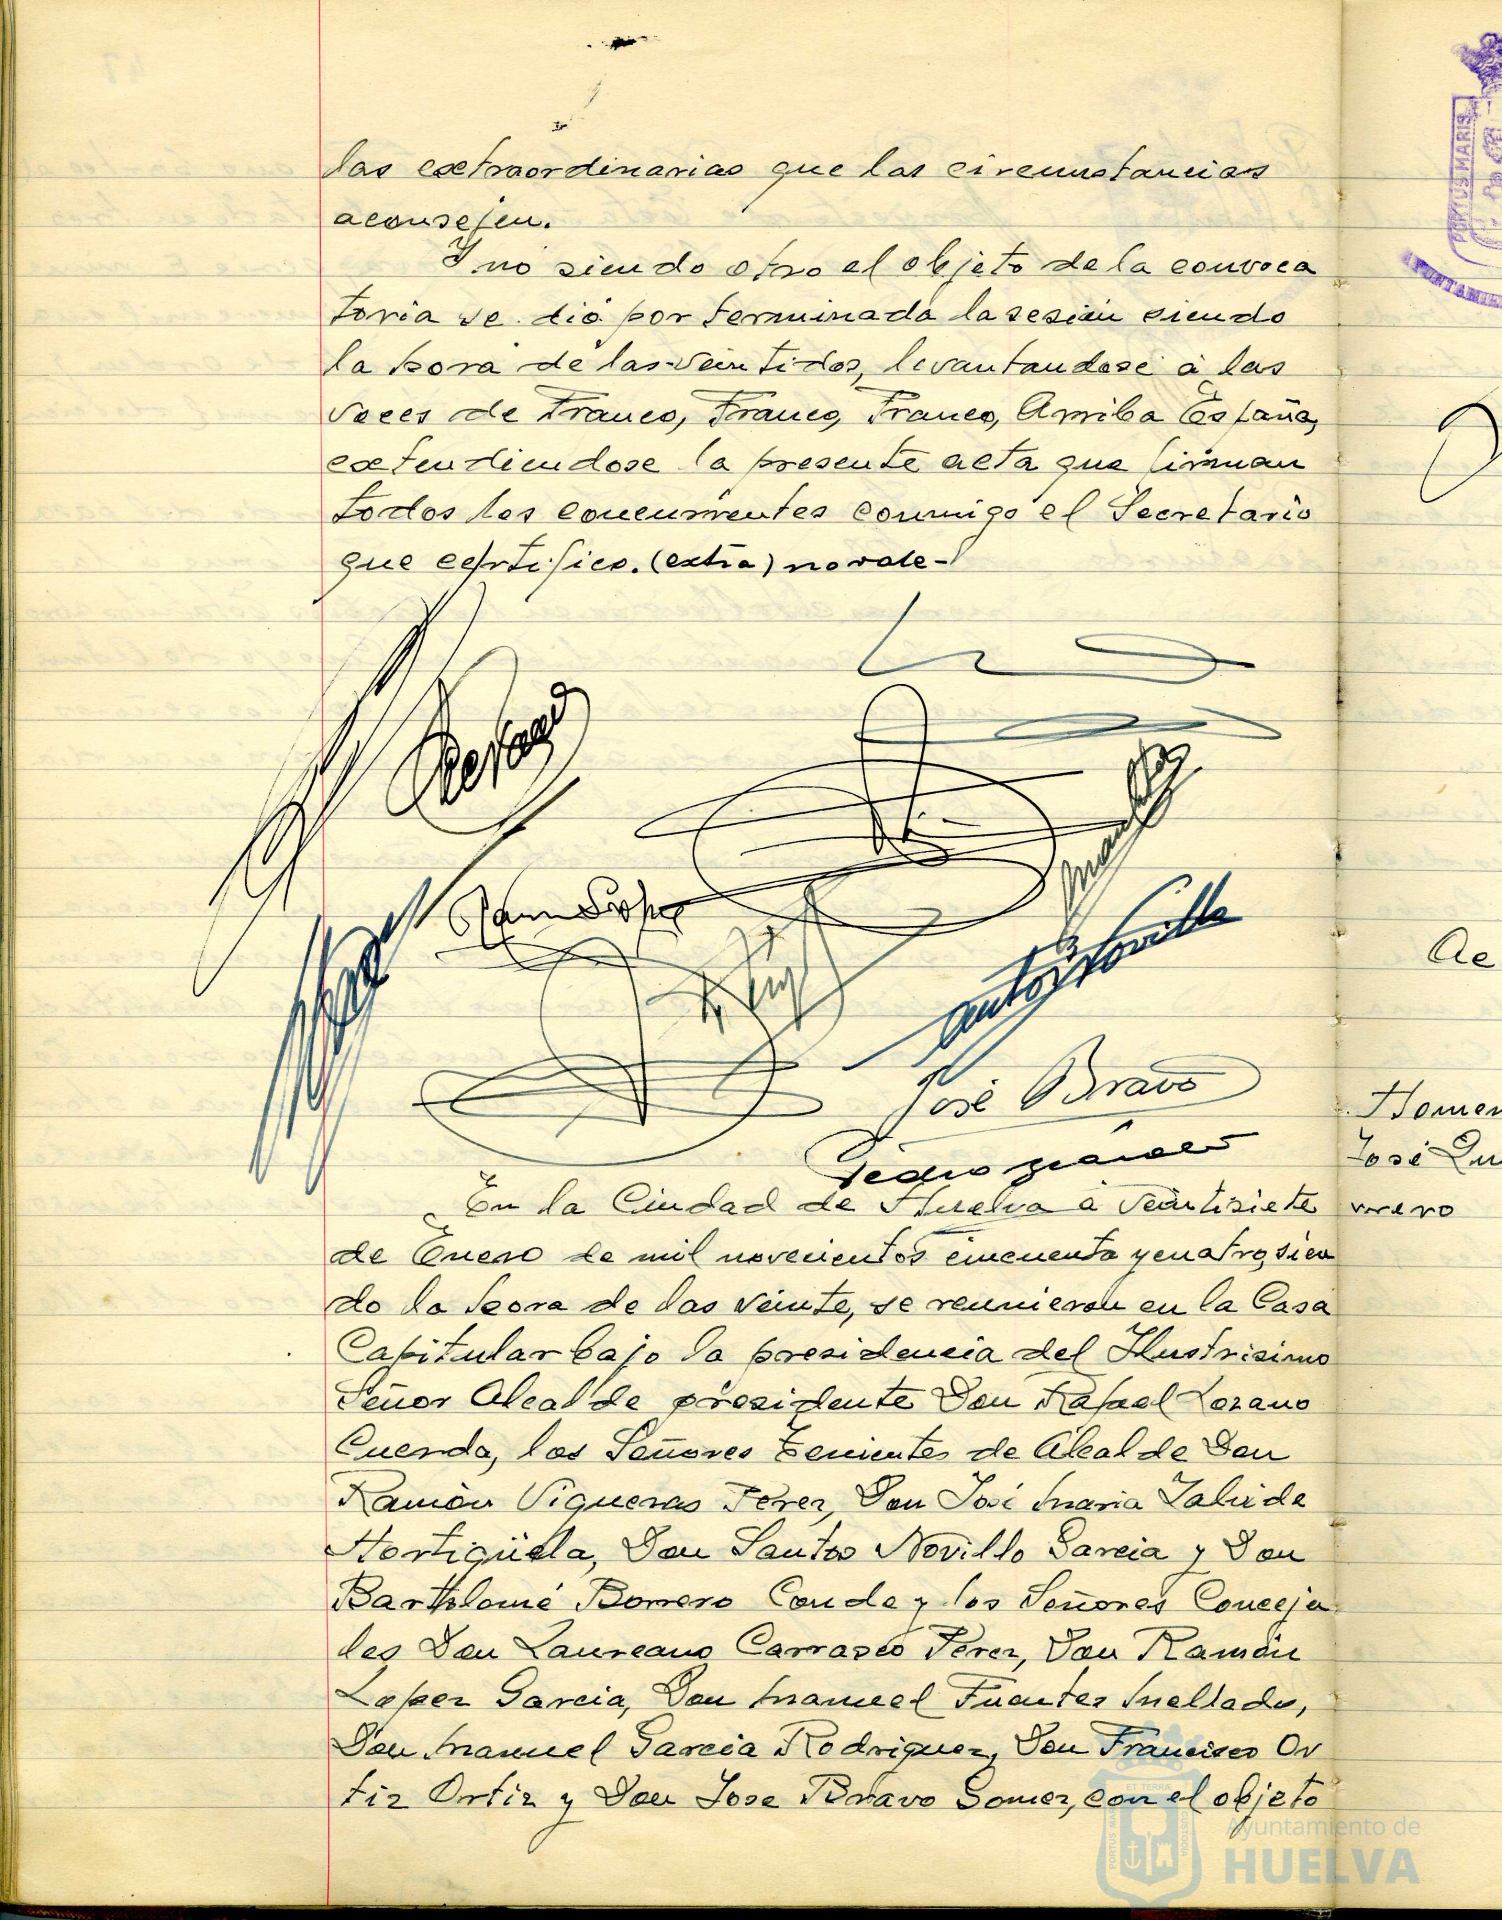 las extraordinarias que las circunstancias
aconsejen.
Y no siendo otro el objeto de la convoca
toria se dió por terminada la sesión siendo
la hora de las veintidos, levantandose á las
voces de Franco, Franco, Franco, Arriba España,
extendiendose la presente acta que firman
todos los concurrentes conmigo el Secretario
que certifico. (extra) no vale-
Ramon Lopez
José Bravo
Pedro
En la Ciudad de Huelva á veintisiete
de Enero de mil novecientos cincuenta y cuatro, sien
do la hora de las veinte, se reunieron en la Casa
Capitular bajo la presidencia del Ilustrisimo
Señor Alcalde presidente Don Rafael Lozano
Cuerda, los Señores Tenientes de Alcalde Don
Ramón Vigueras Perez, Don José Maria Zalvide
Hortigüela, Don Santos Novillo Garcia y Don
Bartholomé Borrero Conde y los Señores Conceja
les Don Laureano Carrasco Perez, Don Ramón
Lopez Garcia, Don Manuel Fuentes Mellado,
Don Manuel Garcia Rodriguez, Don Francisco Or
tiz Ortiz y Don Jose Bravo Gomez, con el objeto
PORTUS MARIS
AYUNTAMIEN
Ac
Homen
José Qu
vrero
Ayuntamiento de
HUELVA